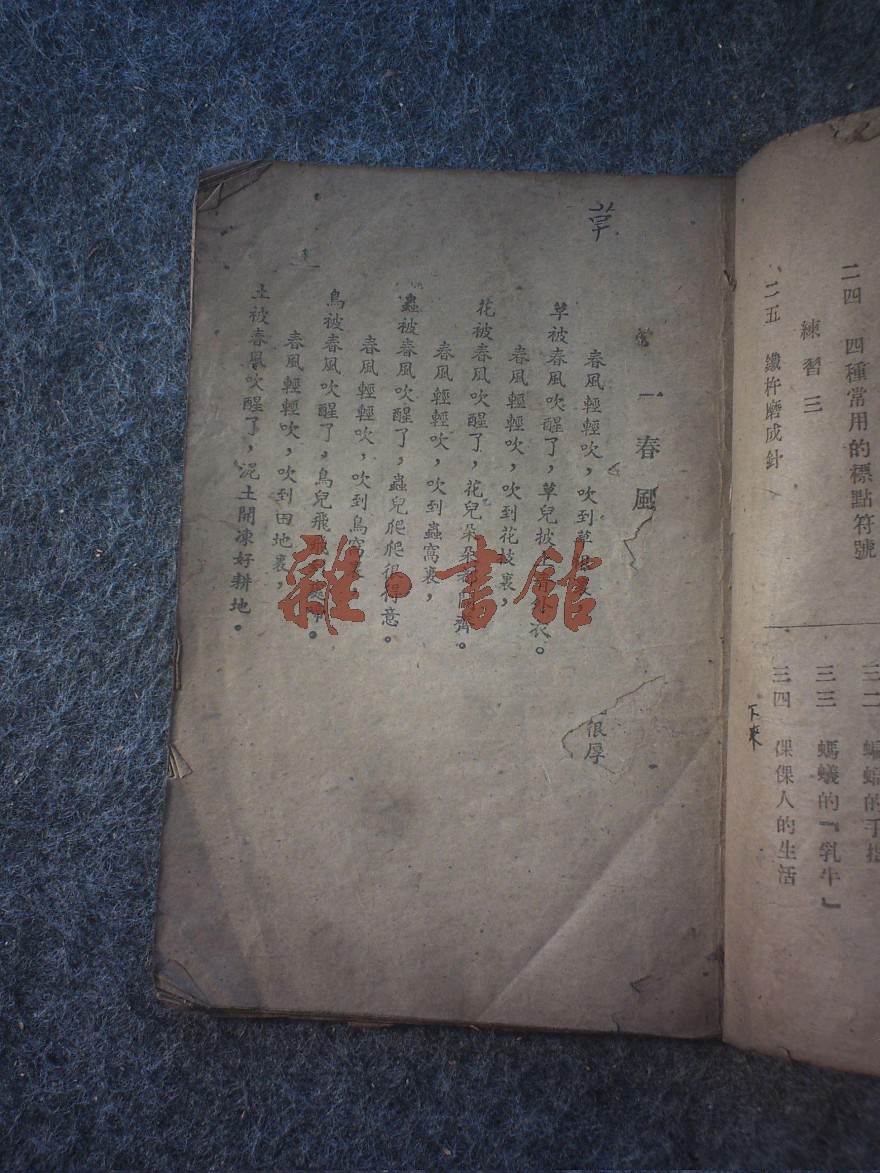 二四 四種常用的標點符號
練習三
二五 鐵杵磨成針
三二 的手指
三三 螞蟻的『乳牛』
三四 倮倮人的生活
下來
草
一 春風
春風輕輕吹，吹到草
草被春風吹醒了，草兒披上 衣。
春風輕輕吹，吹到花枝裏，
花被春風吹醒了，花兒朵朵 齊。
春風輕輕吹，吹到蟲窩裏，
蟲被春風吹醒了，蟲兒爬爬很得意。
春風輕輕吹，吹到鳥窩
鳥被春風吹醒了，鳥兒飛飛
春風輕輕吹，吹到田地裏，
土被春風吹醒了，泥土開凍好耕地。
很厚
雜·書館